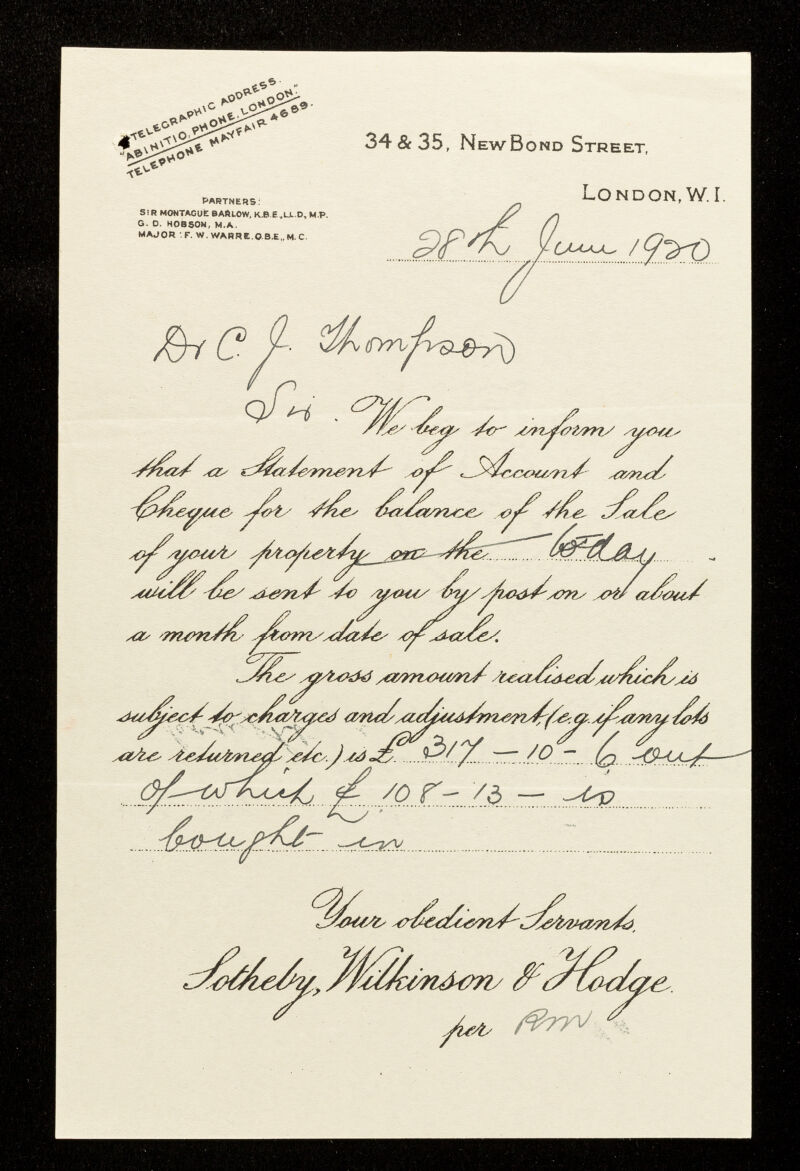 TELEGRAPHIC ADDRESS.
"ABINITIO, PHONE, LONDON."
TELEPHONE MAYFAIR 4689.
34 & 35, NEW BOND STREET,
LONDON, W.I.
PARTNERS:
SIR MONTAGUE BARLOW, K.B.E., LL.D., M.P.
G. D. HOBSON, M.A.
MAJOR: F. W. WARRE. O.B.E., M.C.
28th June 1920
Dr C. J. Thompson
Sir. We beg to inform you
that a Statement of Account and
Cheque for the balance of the Sale
of your property on the to-day
will be sent to you by post on or about
a month from date of sale.
The gross amount realised which is
subject to charges and adjustment, (e.g. if any lots
are returned etc.) is £. 317 - 10 - 6 out
of which £ 108 - 13 - is
bought in
Your obedient Servants,
Sotheby, Wilkinson & Hodge.
per RM